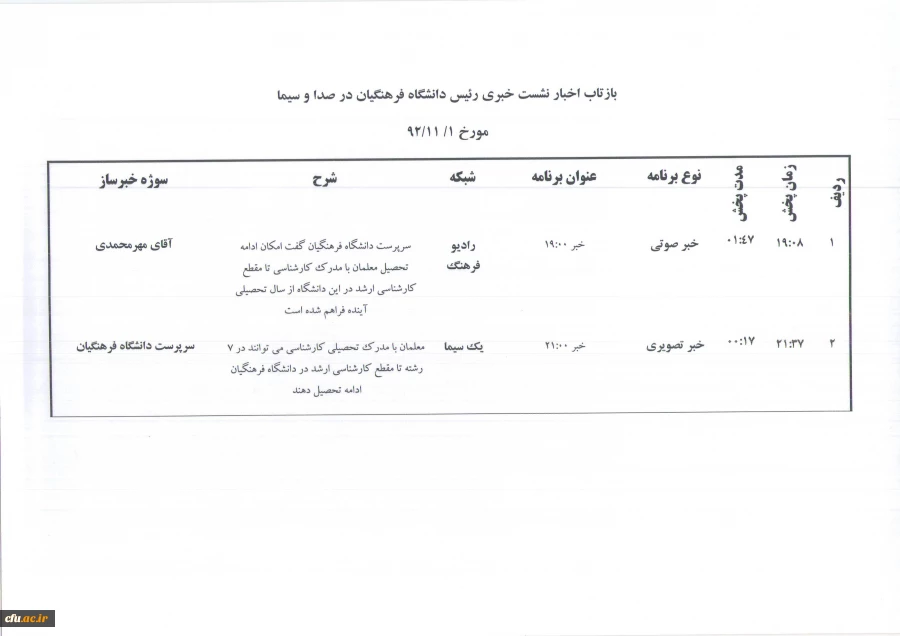 بازتاب اخبار نشست خبری رئیس دانشگاه فرهنگیان در صدا و سیما
مورخ ۹۲/۱۱/۱
ردیف زمان پخش مدت پخش نوع برنامه عنوان برنامه شبکه شرح سوژه خبرساز
۱ ۱۹:۰۸ ۰۱:٤۷ خبر صوتی خبر ۱۹:۰۰ رادیو سرپرست دانشگاه فرهنگیان گفت امکان ادامه آقای مهرمحمدی
فرهنگ تحصیل معلمان با مدرک کارشناسی تا مقطع
کارشناسی ارشد در این دانشگاه از سال تحصیلی
آینده فراهم شده است
۲ ۲۱:۳۷ ۰۰:۱۷ خبر تصویری خبر ۲۱:۰۰ یک سیما معلمان با مدرک تحصیلی کارشناسی می توانند در ۷ سرپرست دانشگاه فرهنگیان
رشته تا مقطع کارشناسی ارشد در دانشگاه فرهنگیان
ادامه تحصیل دهند
cfu.ac.ir